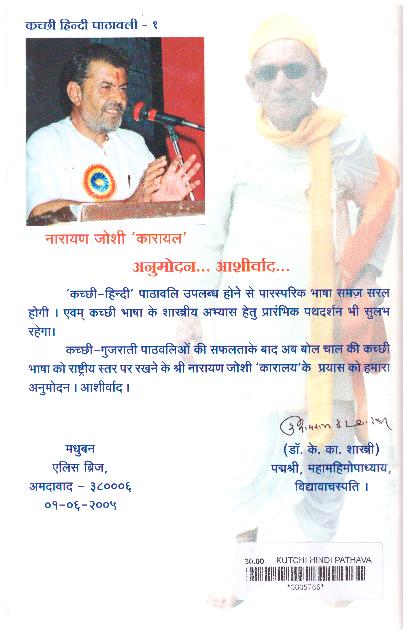 कच्छी हिन्दी पाठावली - १
नारायण जोशी 'कारायल'
अनुमोदन... आशीर्वाद...
'कच्छी-हिन्दी' पाठावलि उपलब्ध होने से पारस्परिक भाषा समज़ सरल
होगी । एवम् कच्छी भाषा के शास्त्रीय अभ्यास हेतु प्रारंभिक पथदर्शन भी सुलभ
रहेगा।
कच्छी-गुजराती पाठवलिओं की सफलताके बाद अब बोल चाल की कच्छी
भाषा को राष्ट्रीय स्तर पर रखने के श्री नारायण जोशी 'कारालय'के प्रयास को हमारा
अनुमोदन । आशीर्वाद ।
(डॉ. के. का. शास्त्री)
पद्मश्री, महामहिमोपाध्याय,
विद्यावाचस्पति ।
मधुबन
एलिस ब्रिज,
अमदावाद - ३८०००६
०१-०६-२००५
30.00 KUTCHI HINDI PATHAVA
*0005786*